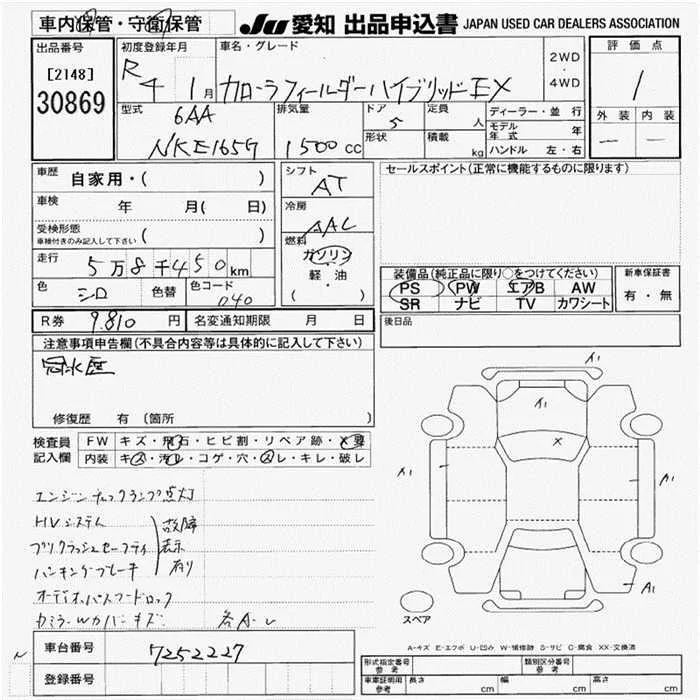 車内保管・守衛保管
JU 愛知 出品申込書 JAPAN USED CAR DEALERS ASSOCIATION
出品番号
[2148]
30869
初度登録年月
R 4 1月
車名・グレード
カローラフィールダーハイブリッド EX
2WD
・
4WD
評価点
1
外装 内装
― ―
型式
6AA
NKE165G
排気量
1500cc
ドア
5
形状
定員
人
積載
kg
ディーラー・並行
モデル年式 年
ハンドル 左・右
車歴
自家用・( )
車検
年 月( 日)
受検形態
車検付きのみ記入して下さい ( )
走行
5万8千450km
色
シロ
色替
色コード
040
シフト
AT
冷房
AAC
燃料
ガソリン
軽・油
( )
セールスポイント(正常に機能するものに限ります)
装備品(純正品に限り○をつけてください)
PS PW エアB AW
SR ナビ TV カワシート
新車保証書
有・無
R券 9.810円
名変通知期限 月 日
後日品
注意事項申告欄(不具合内容等は具体的に記入して下さい)
冠水歴
修復歴 有 (箇所 )
検査員
記入欄
FW キズ・飛石・ヒビ割・リペア跡・X要
内装 キズ・汚れ・コゲ・穴・スレ・キレ・破レ
エンジンチェックランプ点灯
HVシステム
プリクラッシュセーフティ
パーキングブレーキ
故障
表示
有り
オーディオパスコードロック
カミラーWカバーキズ
各A・U
イ1
イ1
X
A1
A1
A1
スペア
A-キズ E-エクボ U-凹み W-補修跡 S-サビ C-腐食 XX-交換済
車台番号
7252227
登録番号
形式指定番号
参考
類別区分番号
参考
車庫証明用
参考
長さ cm
幅 cm
高さ cm